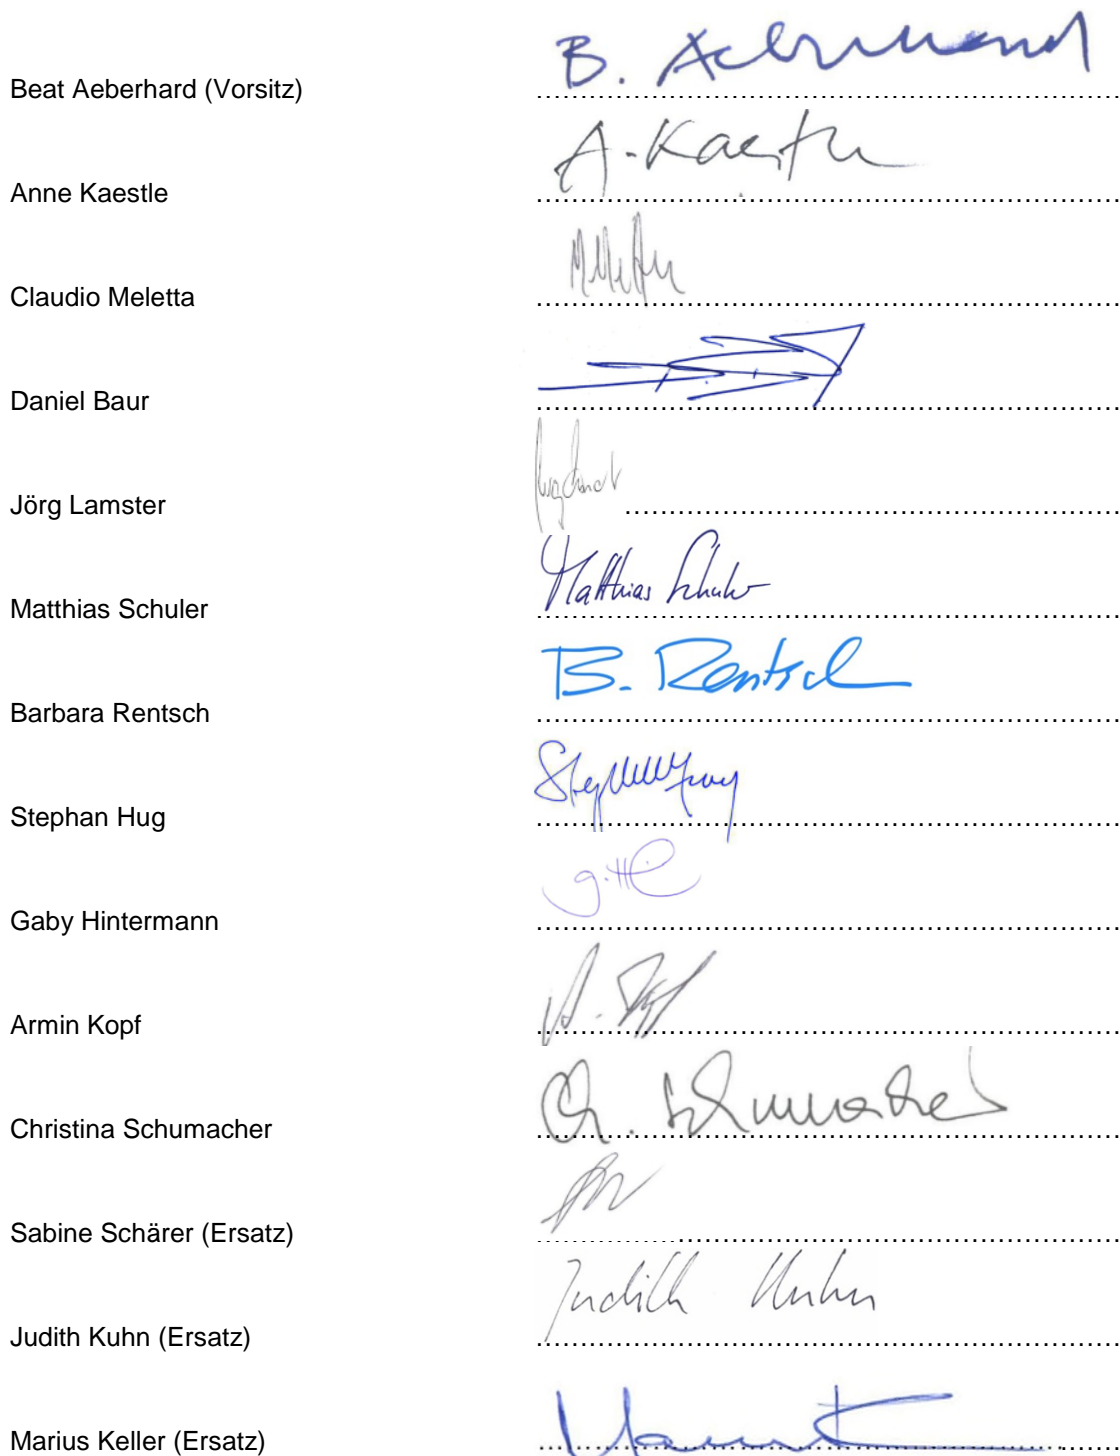 Beat Aeberhard (Vorsitz) B. Aeberhard
Anne Kaestle A. Kaestle
Claudio Meletta Meletta
Daniel Baur
Jörg Lamster
Matthias Schuler Matthias Schuler
Barbara Rentsch B. Rentsch
Stephan Hug Stephan Hug
Gaby Hintermann
Armin Kopf A. Kopf
Christina Schumacher Ch. Schumacher
Sabine Schärer (Ersatz)
Judith Kuhn (Ersatz) Judith Kuhn
Marius Keller (Ersatz)